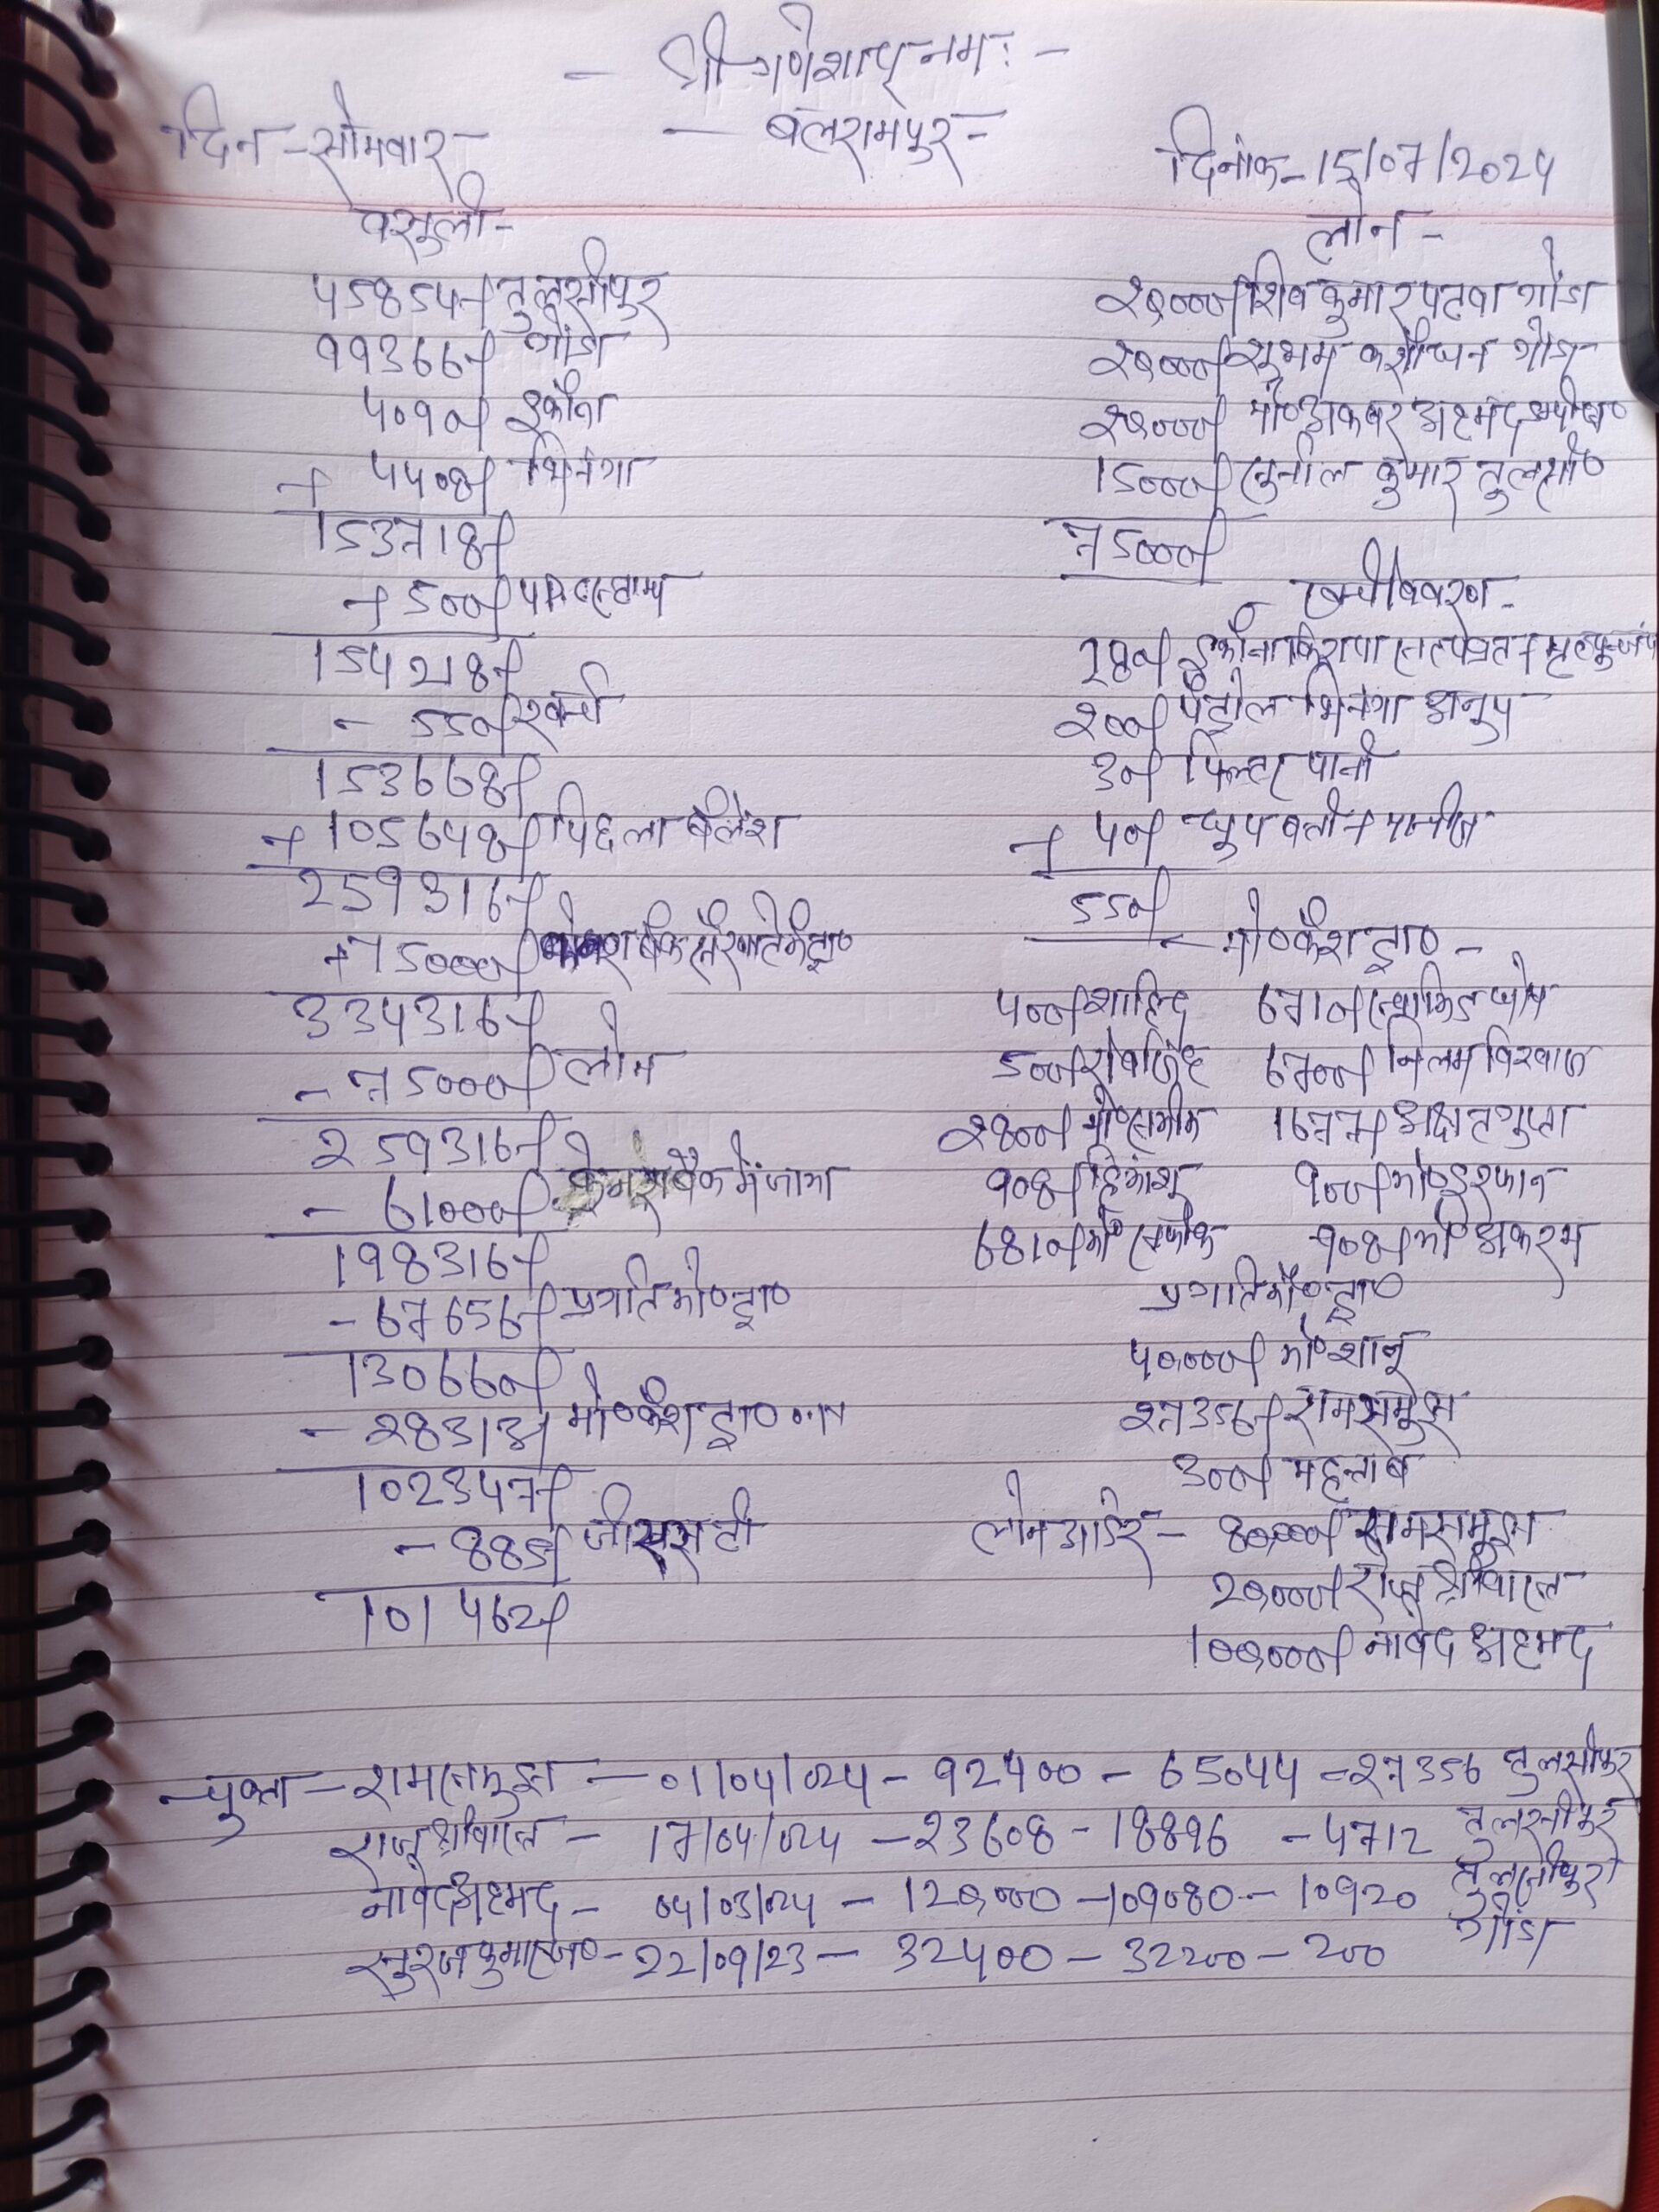 - श्री गणेशाय नमः -
- बलरामपुर -
दिन - सोमवार -
दिनांक - 15/07/2024
वसुली -
45854/- तुलसीपुर
99366/- गोंडा
4090/- इकौना
+ 4408/- भिनगा
153718/-
+ 500/-
154218/-
- 550/- खर्चा
153668/-
+ 105648/- पिछला बैलेंश
259316/-
+75000/-
334316/-
- 75000/- लोन
259316/-
- 61000/- बैंक में जमा
198316/-
- 67656/- प्रगति मो० ट्रा०
130660/-
- 28313/- मो० कैश ट्रा०
102347/-
- 885/- जीएसटी
101462/-
लोन -
20000/- शिव कुमार पटवा गोंडा
20000/- सुभम गोंडा
20000/- मो० अकबर अहमद
15000/- सुनील कुमार तुलसी०
75000/-
खर्चा विवरण -
280/- इकौना किराया
200/- पेट्रोल भिनगा अनुप
30/- फिल्टर पानी
+ 40/- धुपबत्ती +
550/-
- मो० कैश ट्रा० -
400/- शाहिद 6710/-
500/- 6700/- निलम
2800/- 1677/- अक्षत गुप्ता
908/- हिमांशु 900/- मो० इरफान
6810/- मो० 908/- मो० अकरम
प्रगति मो० ट्रा०
40000/- मो० शानू
27356/- रामसमुझ
300/- महताब
लोन आर्डर - 80,000/- रामसमुझ
20,000/- राजू श्रीवास्त
100,000/- जावेद अहमद
चुक्ता - रामसमुझ - 01/04/024 - 92400 - 65044 = 27356 तुलसीपुर
राजू श्रीवास्त - 17/04/024 - 23608 - 18896 - 4712 तुलसीपुर
जावेद अहमद - 04/03/024 - 120,000 - 109080 - 10920 तुलसीपुर
सुरज कुमार - 22/09/23 - 32400 - 32200 - 200 गोंडा